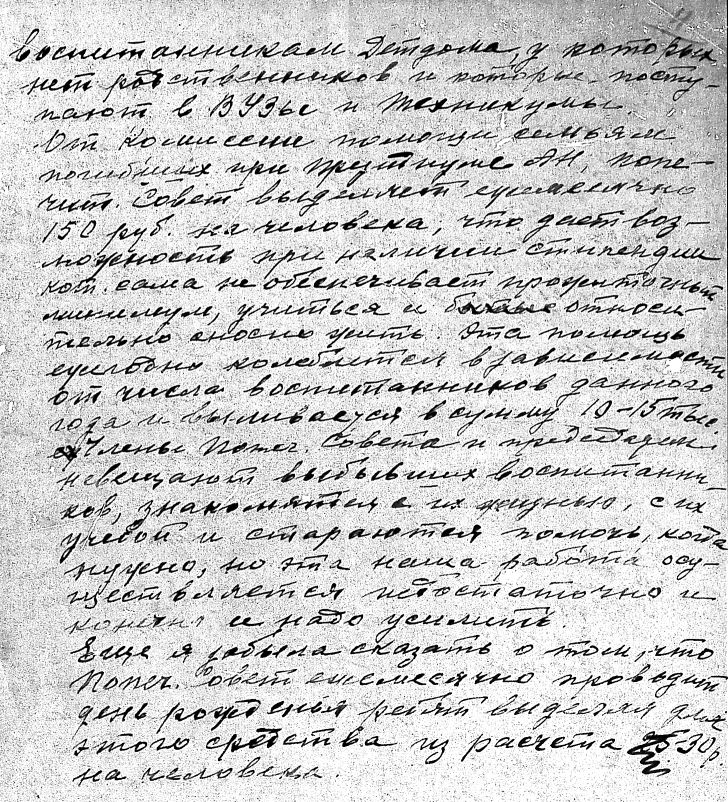 воспитанникам Детдома, у которых
нет родственников и которые посту-
пают в ВУЗы и Техникумы.
От Комиссии помощи семьям
погибших при Президиуме АН, попе-
чит. Совет выделяет ежемесячно
150 руб. на человека, что дает воз-
можность при наличии стипендии
кот. сама не обеспечивает прожиточный
минимум, учиться и относи-
тельно сносно жить. Эта помощь
ежегодно колеблется в зависимости
от числа воспитанников данного
года и выливается в сумму 10-15 тыс.
Члены Попеч. Совета и председатель
невещают выбывших воспитанни-
ков, знакомятся с их жизнью, с их
учебой и стараются помочь, когда
нужно, но эта наша работа осу-
ществляется недостаточно и
и надо усилить.
Еще я забыла сказать о том, что
Попеч. Совет ежемесячно проводит
день рожденья ребят выделяя для
этого средства из расчета 30 р.
на человека.